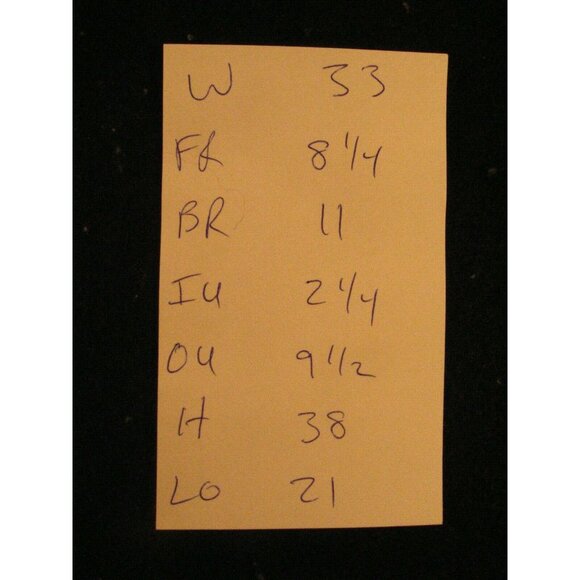 W 33
FR 8 1/4
BR 11
IU 2 1/4
OU 9 1/2
H 38
LO 21